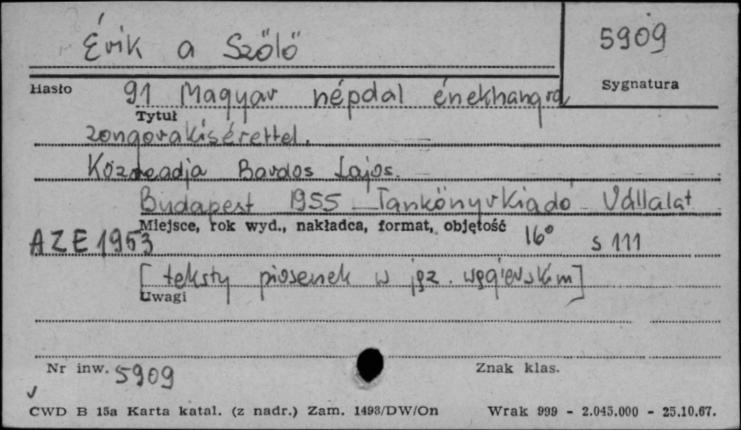 Évik a Szőlő
5909
Hasło
Sygnatura
91 Magyar népdal énekhangra
Tytuł
zongorakisérettel.
Közreadja Bardos Lajos.
Budapest 1955 Tankönyvkiadó Vállalat
Miejsce, rok wyd., nakładca, format, objętość
AZE 1953 16° s 111
[teksty piosenek w jęz. węgierskim]
Uwagi
Nr inw. 5909
Znak klas.
CWD B 15a Karta katal. (z nadr.) Zam. 1493/DW/On Wrak 999 - 2.045.000 - 25.10.67.